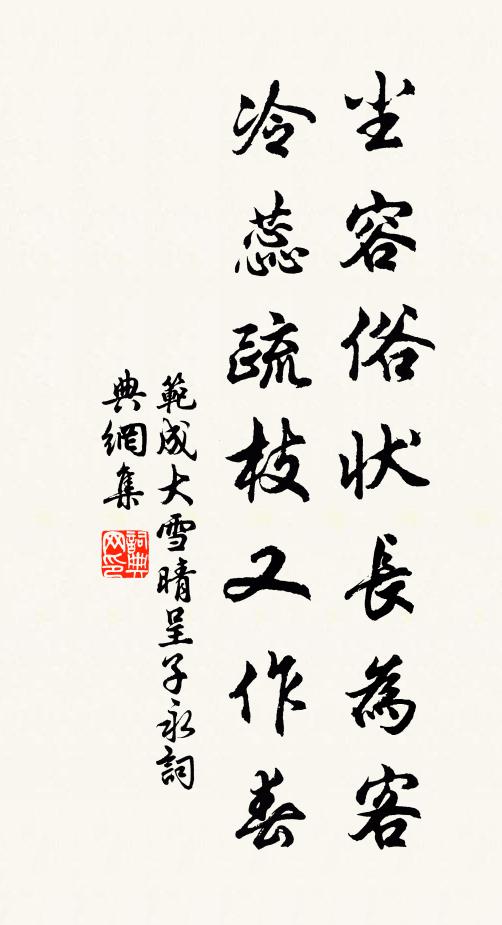 尘容俗状長為客
冷蕊疏枝又作春
範成大雪晴呈子永詞
典網集
詞典网印